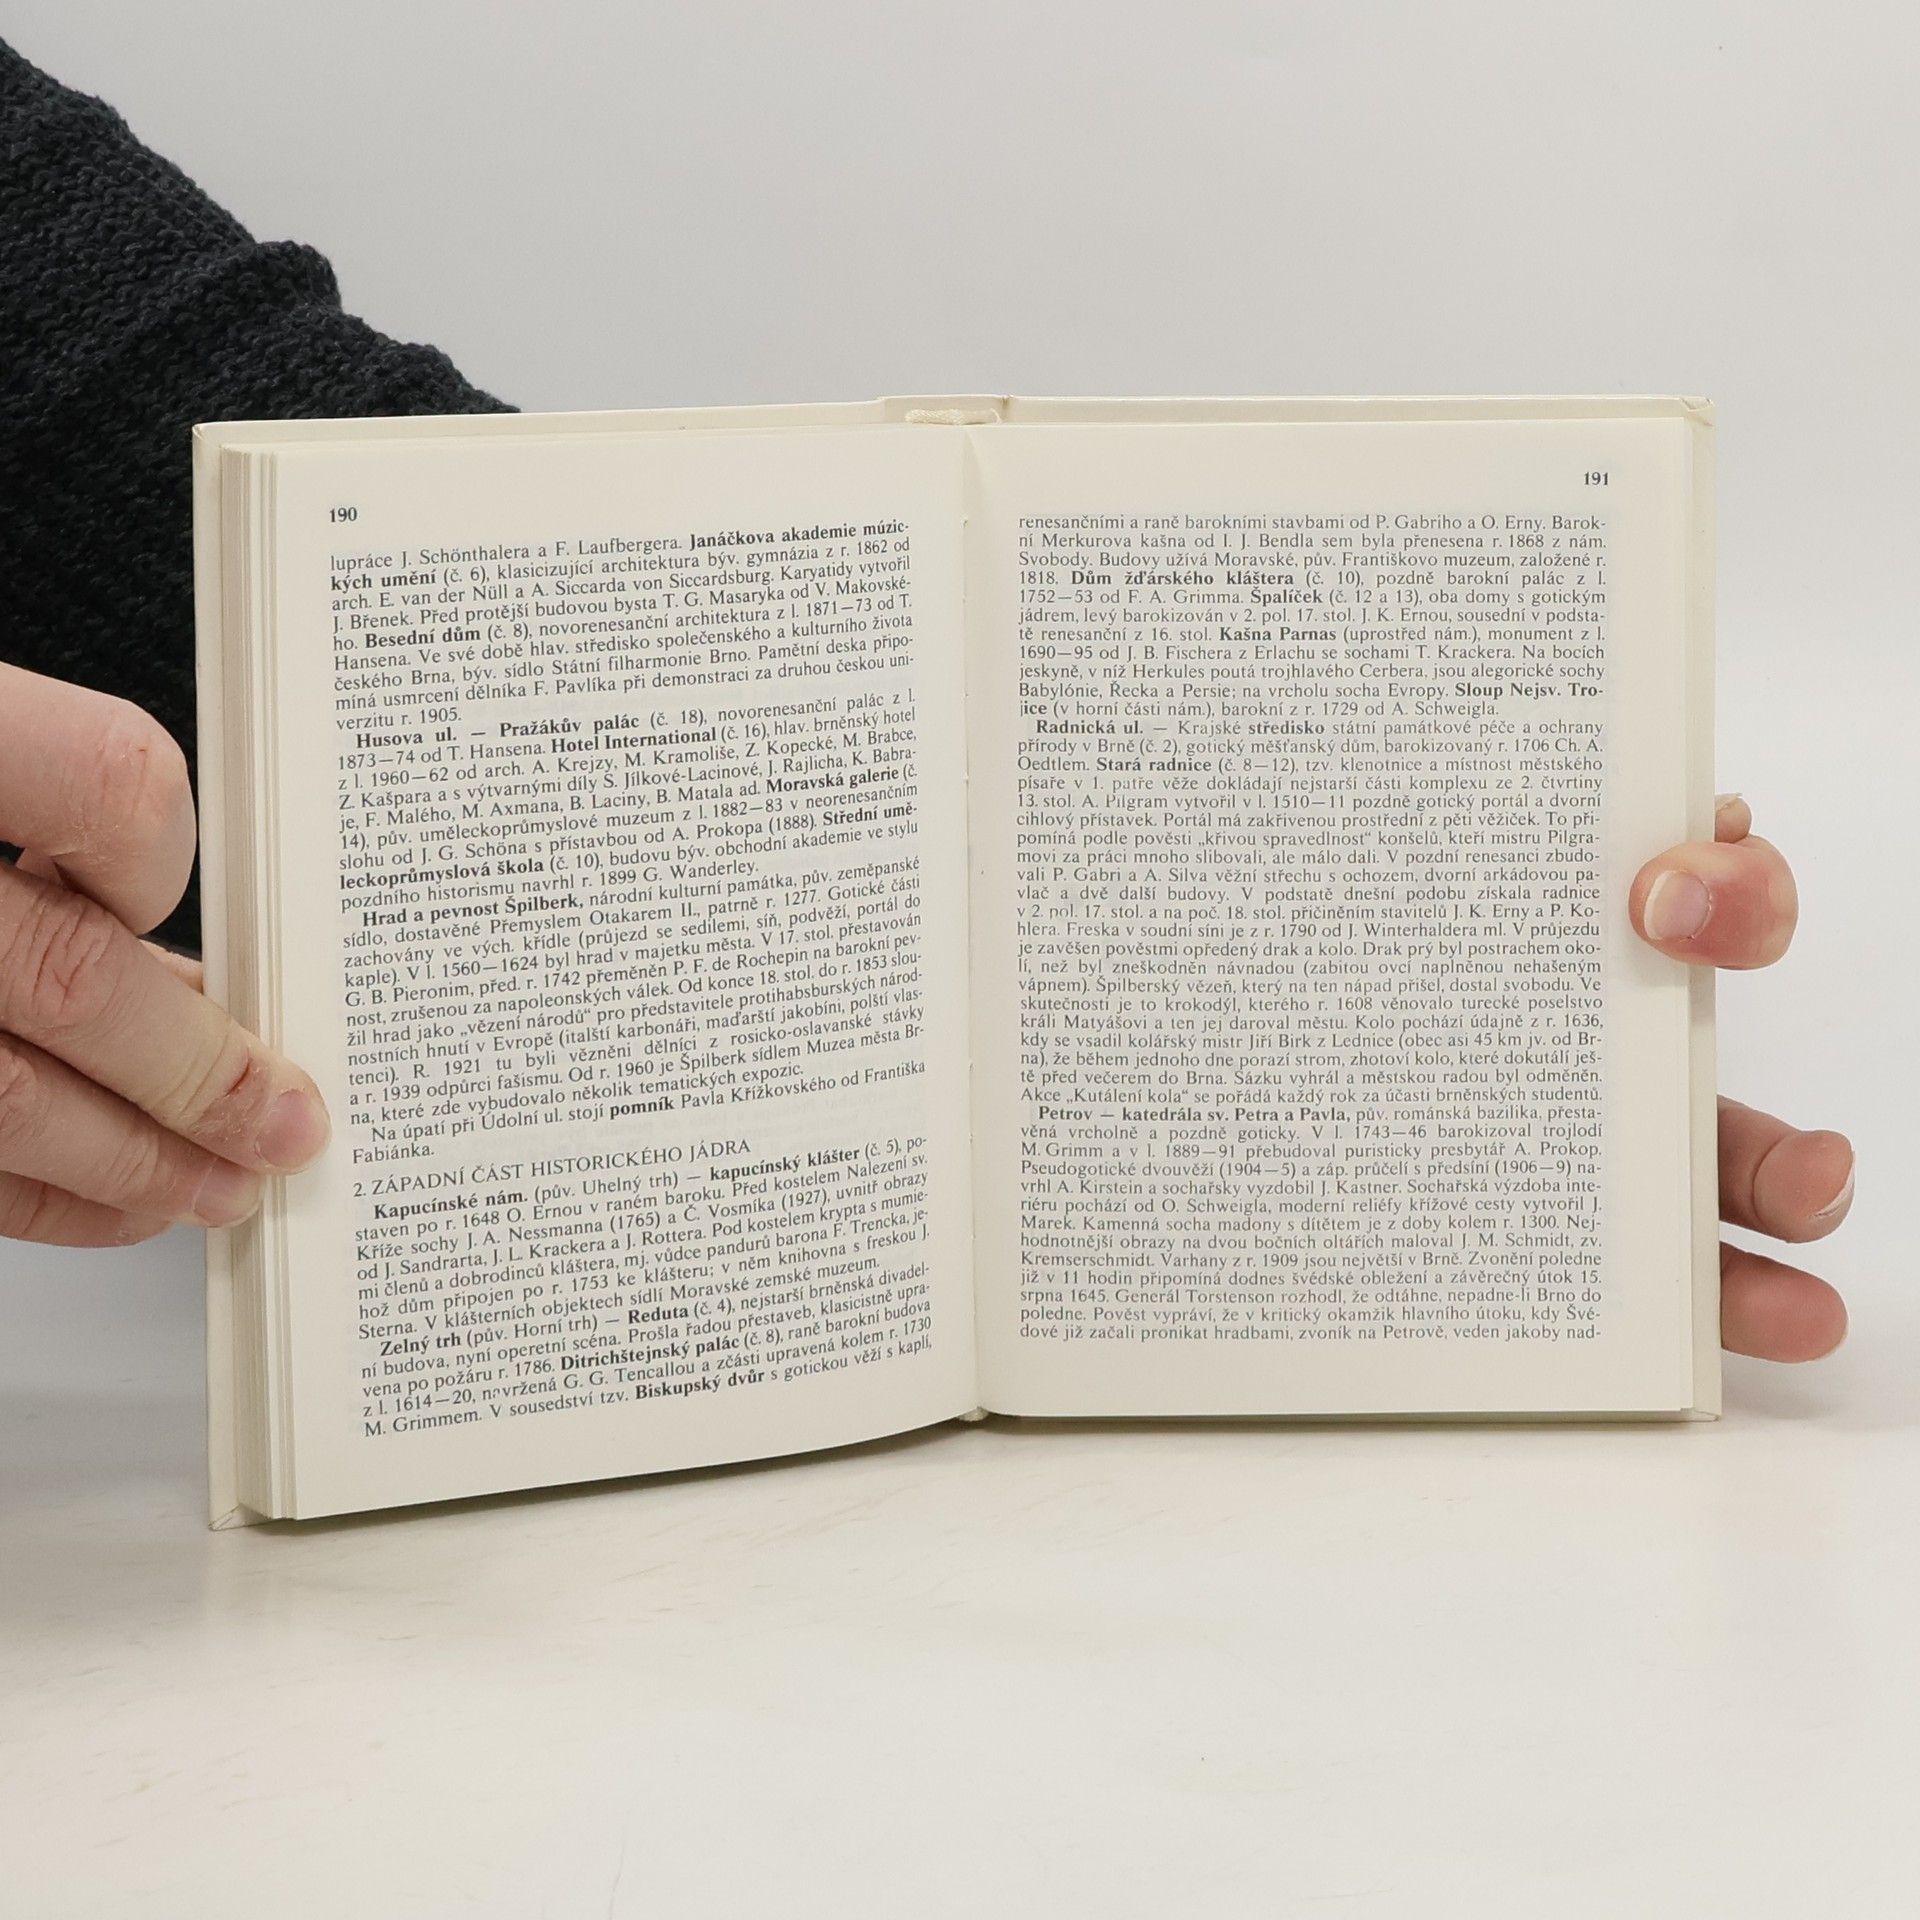 190
lupráce J. Schönthalera a F. Laufbergera. Janáčkova akademie múzic-
kých umění (č. 6), klasicizující architektura býv. gymnázia z r. 1862 od
arch. E. van der Nüll a A. Siccarda von Siccardsburg. Karyatidy vytvořil
J. Břenek. Před protější budovou bysta T. G. Masaryka od V. Makovské-
ho. Besední dům (č. 8), novorenesanční architektura z l. 1871—73 od T.
Hansena. Ve své době hlav. středisko společenského a kulturního života
českého Brna, býv. sídlo Státní filharmonie Brno. Pamětní deska připo-
míná usmrcení dělníka F. Pavlíka při demonstraci za druhou českou uni-
verzitu r. 1905.
Husova ul. — Pražákův palác (č. 18), novorenesanční palác z l.
1873—74 od T. Hansena. Hotel International (č. 16), hlav. brněnský hotel
z l. 1960—62 od arch. A. Krejzy, M. Kramoliše, Z. Kopecké, M. Brabce,
Z. Kašpara a s výtvarnými díly S. Jílkové-Lacinové, J. Rajlicha, K. Babra-
je, F. Malého, M. Axmana, B. Laciny, B. Matala ad. Moravská galerie (č.
14), pův. uměleckoprůmyslové muzeum z l. 1882—83 v neorenesančním
slohu od J. G. Schöna s přístavbou od A. Prokopa (1888). Střední umě-
leckoprůmyslová škola (č. 10), budovu býv. obchodní akademie ve stylu
pozdního historismu navrhl r. 1899 G. Wanderley.
Hrad a pevnost Špilberk, národní kulturní památka, pův. zeměpanské
sídlo, dostavěné Přemyslem Otakarem II., patrně r. 1277. Gotické části
zachovány ve vých. křídle (průjezd se sedilemi, síň, podvěží, portál do
kaple). V l. 1560—1624 byl hrad v majetku města. V 17. stol. přestavován
G. B. Pieronim, před. r. 1742 přeměněn P. F. de Rochepin na barokní pev-
nost, zrušenou za napoleonských válek. Od konce 18. stol. do r. 1853 slou-
žil hrad jako „vězení národů“ pro představitele protihabsburských národ-
nostních hnutí v Evropě (italští karbonáři, maďarští jakobíni, polští vlas-
tenci). R. 1921 tu byli vězněni dělníci z rosicko-oslavanské stávky
a r. 1939 odpůrci fašismu. Od r. 1960 je Špilberk sídlem Muzea města Br-
na, které zde vybudovalo několik tematických expozic.
Na úpatí při Údolní ul. stojí pomník Pavla Křížkovského od Františka
Fabiánka.
2. ZÁPADNÍ ČÁST HISTORICKÉHO JÁDRA
Kapucínské nám. (pův. Uhelný trh) — kapucínský klášter (č. 5), po-
staven po r. 1648 O. Ernou v raném baroku. Před kostelem Nalezení sv.
Kříže sochy J. A. Nessmanna (1765) a Č. Vosmíka (1927), uvnitř obrazy
od J. Sandrarta, J. L. Krackera a J. Rottera. Pod kostelem krypta s mumie-
mi členů a dobrodinců kláštera, mj. vůdce pandurů barona F. Trencka, je-
hož dům připojen po r. 1753 ke klášteru; v něm knihovna s freskou J.
Sterna. V klášterních objektech sídlí Moravské zemské muzeum.
Zelný trh (pův. Horní trh) — Reduta (č. 4), nejstarší brněnská divadel-
ní budova, nyní operetní scéna. Prošla řadou přestaveb, klasicistně upra-
vena po požáru r. 1786. Ditrichštejnský palác (č. 8), raně barokní budova
z l. 1614—20, navržená G. G. Tencallou a zčásti upravená kolem r. 1730
M. Grimmem. V sousedství tzv. Biskupský dvůr s gotickou věží s kaplí,
191
renesančními a raně barokními stavbami od P. Gabriho a O. Erny. Barok-
ní Merkurova kašna od I. J. Bendla sem byla přenesena r. 1868 z nám.
Svobody. Budovy užívá Moravské, pův. Františkovo muzeum, založené r.
1818. Dům žďárského kláštera (č. 10), pozdně barokní palác z l.
1752—53 od F. A. Grimma. Špalíček (č. 12 a 13), oba domy s gotickým
jádrem, levý barokizován v 2. pol. 17. stol. J. K. Ernou, sousední v podsta-
tě renesanční z 16. stol. Kašna Parnas (uprostřed nám.), monument z l.
1690—95 od J. B. Fischera z Erlachu se sochami T. Krackera. Na bocích
jeskyně, v níž Herkules poutá trojhlavého Cerbera, jsou alegorické sochy
Babylónie, Řecka a Persie; na vrcholu socha Evropy. Sloup Nejsv. Tro-
jice (v horní části nám.), barokní z r. 1729 od A. Schweigla.
Radnická ul. — Krajské středisko státní památkové péče a ochrany
přírody v Brně (č. 2), gotický měšťanský dům, barokizovaný r. 1706 Ch. A.
Oedtlem. Stará radnice (č. 8—12), tzv. klenotnice a místnost městského
písaře v 1. patře věže dokládají nejstarší části komplexu ze 2. čtvrtiny
13. stol. A. Pilgram vytvořil v l. 1510—11 pozdně gotický portál a dvorní
cihlový přístavek. Portál má zakřivenou prostřední z pěti věžiček. To při-
pomíná podle pověsti „křivou spravedlnost“ konšelů, kteří mistru Pilgra-
movi za práci mnoho slibovali, ale málo dali. V pozdní renesanci zbudo-
vali P. Gabri a A. Silva věžní střechu s ochozem, dvorní arkádovou pa-
vlač a dvě další budovy. V podstatě dnešní podobu získala radnice
v 2. pol. 17. stol. a na poč. 18. stol. přičiněním stavitelů J. K. Erny a P. Ko-
hlera. Freska v soudní síni je z r. 1790 od J. Winterhaldera ml. V průjezdu
je zavěšen pověstmi opředený drak a kolo. Drak prý byl postrachem oko-
lí, než byl zneškodněn návnadou (zabitou ovcí naplněnou nehašeným
vápnem). Špilberský vězeň, který na ten nápad přišel, dostal svobodu. Ve
skutečnosti je to krokodýl, kterého r. 1608 věnovalo turecké poselstvo
králi Matyášovi a ten jej daroval městu. Kolo pochází údajně z r. 1636,
kdy se vsadil kolářský mistr Jiří Birk z Lednice (obec asi 45 km jv. od Br-
na), že během jednoho dne porazí strom, zhotoví kolo, které dokutálí ješ-
tě před večerem do Brna. Sázku vyhrál a městskou radou byl odměněn.
Akce „Kutálení kola“ se pořádá každý rok za účasti brněnských studentů.
Petrov — katedrála sv. Petra a Pavla, pův. románská bazilika, přesta-
věná vrcholně a pozdně goticky. V l. 1743—46 barokizoval trojlodí
M. Grimm a v l. 1889—91 přebudoval puristicky presbytář A. Prokop.
Pseudogotické dvouvěží (1904—5) a záp. průčelí s předsíní (1906—9) na-
vrhl A. Kirstein a sochařsky vyzdobil J. Kastner. Sochařská výzdoba inte-
riéru pochází od O. Schweigla, moderní reliéfy křížové cesty vytvořil J.
Marek. Kamenná socha madony s dítětem je z doby kolem r. 1300. Nej-
hodnotnější obrazy na dvou bočních oltářích maloval J. M. Schmidt, zv.
Kremserschmidt. Varhany z r. 1909 jsou největší v Brně. Zvonění poledne
již v 11 hodin připomíná dodnes švédské obležení a závěrečný útok 15.
srpna 1645. Generál Torstenson rozhodl, že odtáhne, nepadne-li Brno do
poledne. Pověst vypráví, že v kritický okamžik hlavního útoku, kdy Švé-
dové již začali pronikat hradbami, zvoník na Petrově, veden jakoby nad-